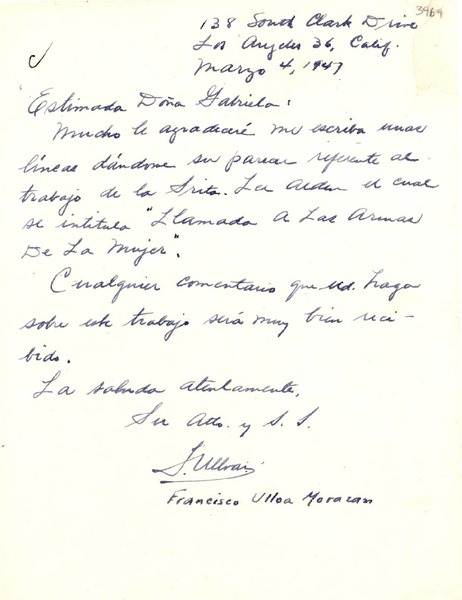 3969
138 South Clark Drive
Los Angeles 36, Calif.
Marzo 4, 1947
Estimada Doña Gabriela:
Mucho le agradeceré me escriba unas
líneas dándome su parecer referente al
trabajo de la Srita. La el cual
se intitula "Llamada A Las Armas
De La Mujer".
Cualquier comentario que Ud. haga
sobre este trabajo será muy bien reci-
bido.
La saluda atentamente,
Su Atto. y S. S.
Francisco Ulloa Morazan